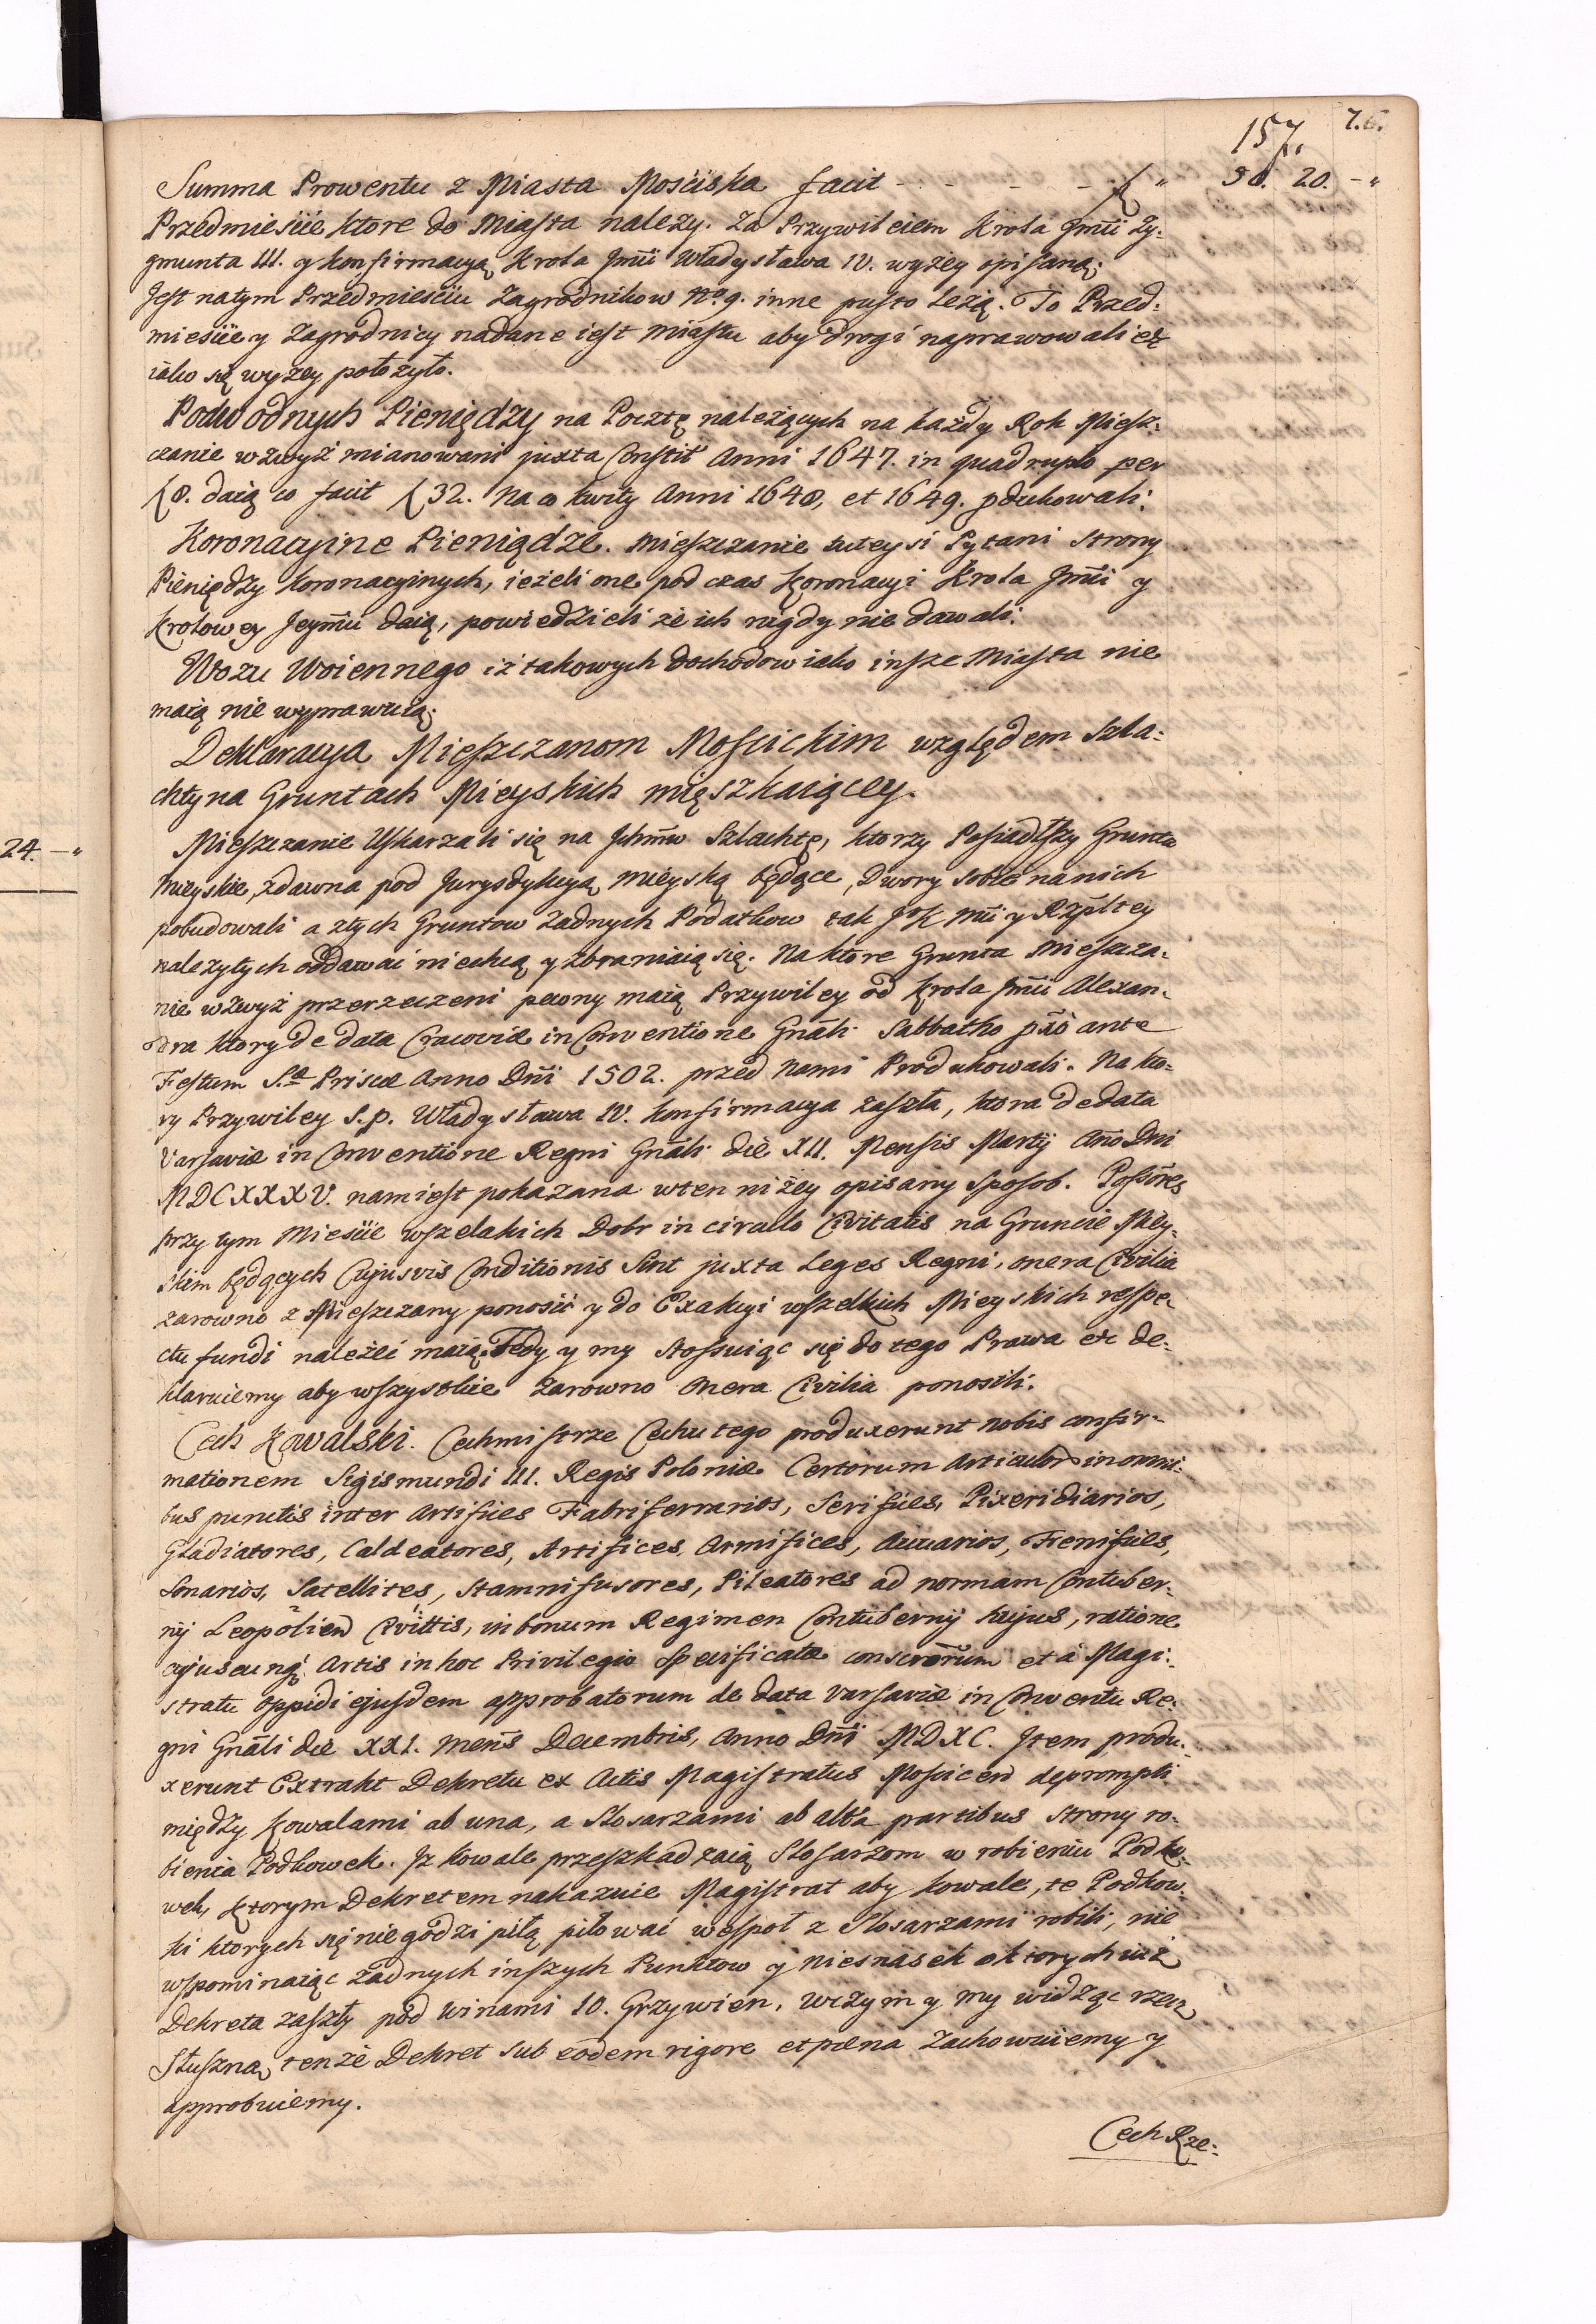 157. 7.6.
Summa Prowentu z Miasta Mościska facit - - - - ƒ „ 38. 20. - „
Przedmieście ktore do Miasta nalezy. Za Przywileiem Krola Jmći Zy-
gmunta III. y konfirmacyą Krola Jmći Władysława IV. wyżey opisaną.
Jest na tym Przedmieściu Zagrodnikow No. 9. inne pusto Leżą. To Przed-
mieście y Zagrodnicy nadane iest Miastu aby Drogi naprawowali etc
iako się wyzey połozyło.
Podwodnych Pieniędzy na Pocztę należących na każdy Rok Miesz-
czanie wzwyż mianowani juxta Constit Anni 1647. in quadruplo per
ƒ 8. daią co facit ƒ 32. Na co kwity Anni 1648, et 1649. pdukowali.
Koronacyine Pieniądze. Mieszczanie tuteysi Pytani strony
Pieniędzy koronacyinych, ieżeli one pod czas Koronacyi Krola Jmći y
Krolowey Jeymći daią, powiedzieli że ich nigdy nie dawali.
Wozu Woiennego iż takowych dochodow iako insze Miasta nie
maią nie wyprawuią.
Deklaracya Mieszczanom Mościckim względem Szla-
chty na Gruntach Mieyskich mięszkaiącey.
Mieszczanie Uskarzali się na Jchmw Szlachtę, ktorzy Posiadłszy Grunta
mieyskie, zdawna pod Jurysdykcyą mieyską będące, Dwory sobie nanich
pobudowali a ztych Gruntow żadnych Podatkow tak JoK Mći y Rzpltey
nalezytych oddawać niechcą y zbraniaią się. Na ktore Grunta Mieszcza-
nie wzwyż przerzeczeni pewny maią Przywiley od Krola Jmći Alexan-
dra ktory de data Cracoviæ in Conventione Gnali Sabbatho pão ante
Festum S.æ Priscæ Anno Dni 1502. przed Nami Produkowali. Na kto-
ry Przywiley S.p. Władysława IV. konfirmacya zaszła, ktora de data
Varsaviæ in Conventione Regni Gnali die XII. Mensis Martij Ano Dni
MDCXXXV. nam iest pokazana wten niżey opisany sposob. Possores
przy tym Mieście wszelakich Dobr in circulo Civitatis na Gruncie Miey-
skim będących Cujusvis Conditionis sint juxta Leges Regni, onera Civilia
zarowno z Mieszczany ponosić y do Exakcyi wszelkich Mieyskich respe-
ctu fundi należeć maią. Tedy y my stosuiąc się do tego Prawa etc de-
klaruiemy aby wszystkie Zarowno Onera Civilia ponosili.
Cech Kowalski. Cechmistrze Cechu tego produxerunt nobis confir-
mationem Sigismundi III. Regis Poloniæ Certorum Articulor in omni-
bus punctis inter Artifices Fabriferrarios, Serifices, Pixeridiarios,
Gladiatores, Caldeatores, Artifices, Armifices, Frenifices,
Satellites, Stamnifusores, Pileatores ad normam Contuber-
nij Leopolien Civittis, in bonum Regimen Contubernij hujus, ratione
cujuscunq Artis in hoc Privilegio Specificatæ et à Magi-
stratu Oppidi ejusdem approbatorum de data Varsaviæ in Conventu Re-
gni Gnali die XXI. Mens Decembris, Anno Dni MDXC. Jtem produ-
xerunt Extrakt Dekretu ex Actis Magistratus Mościcen deprompti
między Kowalami ab una, a Slosarzami ab altra partibus strony ro-
bienia Podkowek. Jż kowale przeszkadzaią Slosarzom w robieniu Podko-
wek, ktorym Dekretem nakazuie Magistrat aby kowale, te Podkow-
ki ktorych się nie godzi piłą piłować wespoł z Slosarzami robili, nie
wspominaiąc żadnych inszych Punktow y niesnasek o ktorych iuż
Dekreta zaszły pod winami 10. Grzywien, wczym y my widząc rzecz
Słuszną, tenże Dekret sub eodem rigore et pæna Zachowuiemy y
approbuiemy.
Cech Rze-
24. - „